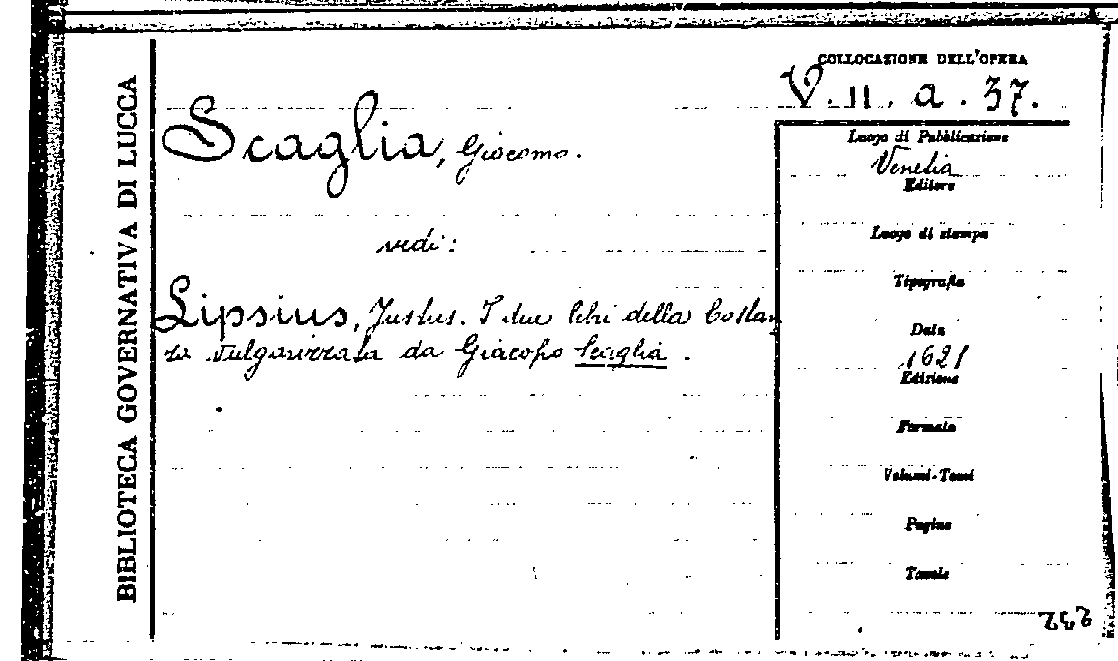 BIBLIOTECA GOVERNATIVA DI LUCCA
Scaglia, Giacomo.
vedi:
Lipsius, Justus. I due libri della Costan
za vulgarizzata da Giacopo Scaglia.
COLLOCAZIONE DELL'OPERA
V. 11. a. 37.
Luogo di Pubblicazione
Venetia
Editore
Luogo di stampa
Tipografia
Data
1621
Edizione
Formato
Volumi-Tomi
Pagine
Tavole